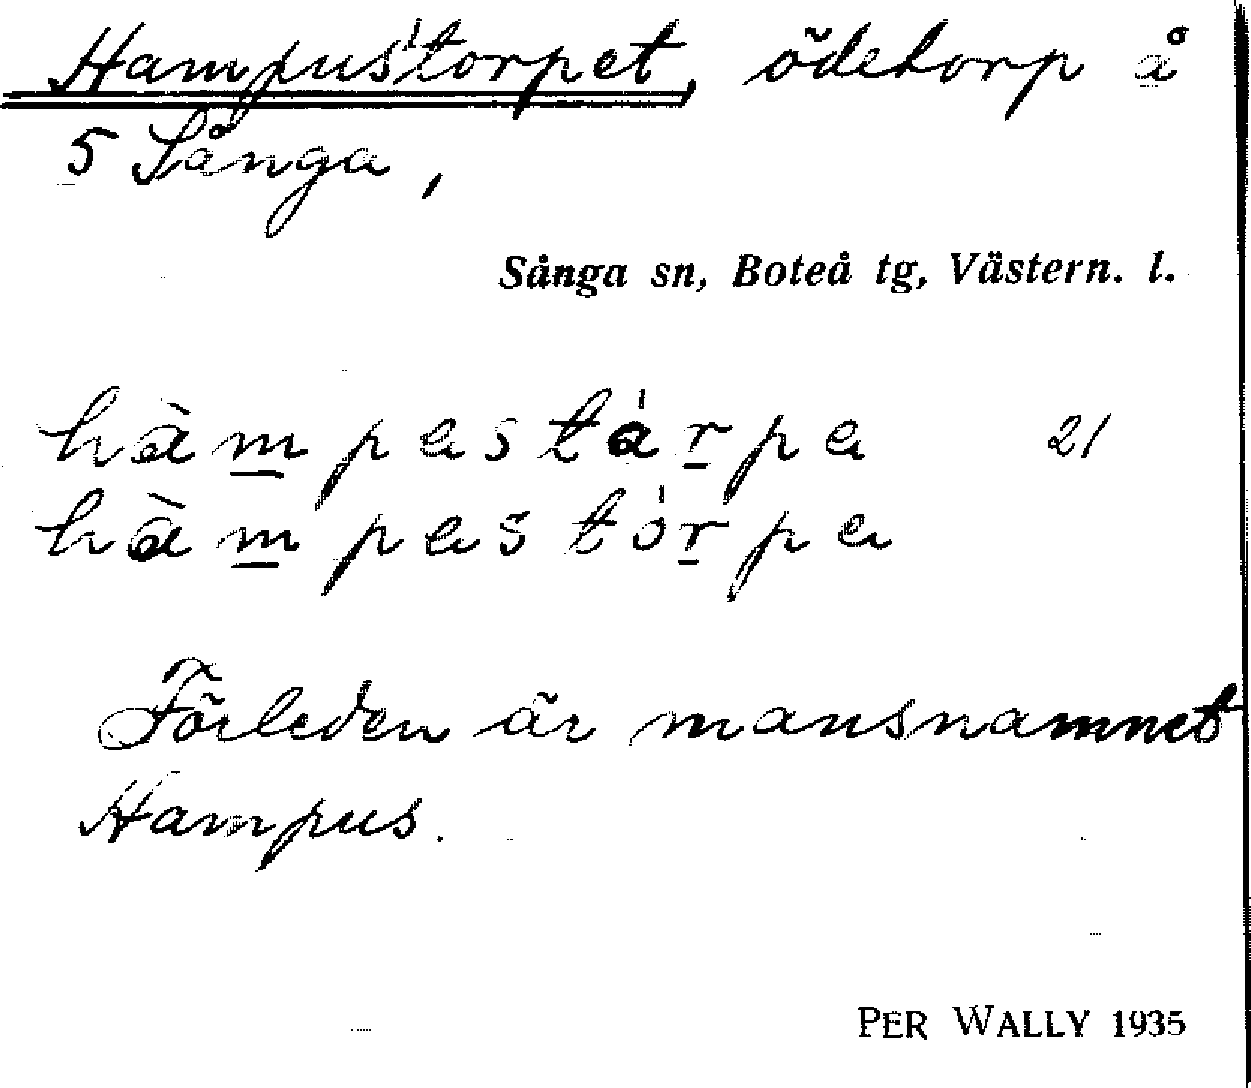 Hampus'torpet, ödetorp å
5 Sånga,
Sånga sn, Boteå tg, Västern. l.
hàmpɐstárpɐ 21
hàmpɐstórpɐ
Förleden är mansnamnet
Hampus.
PER WALLY 1935